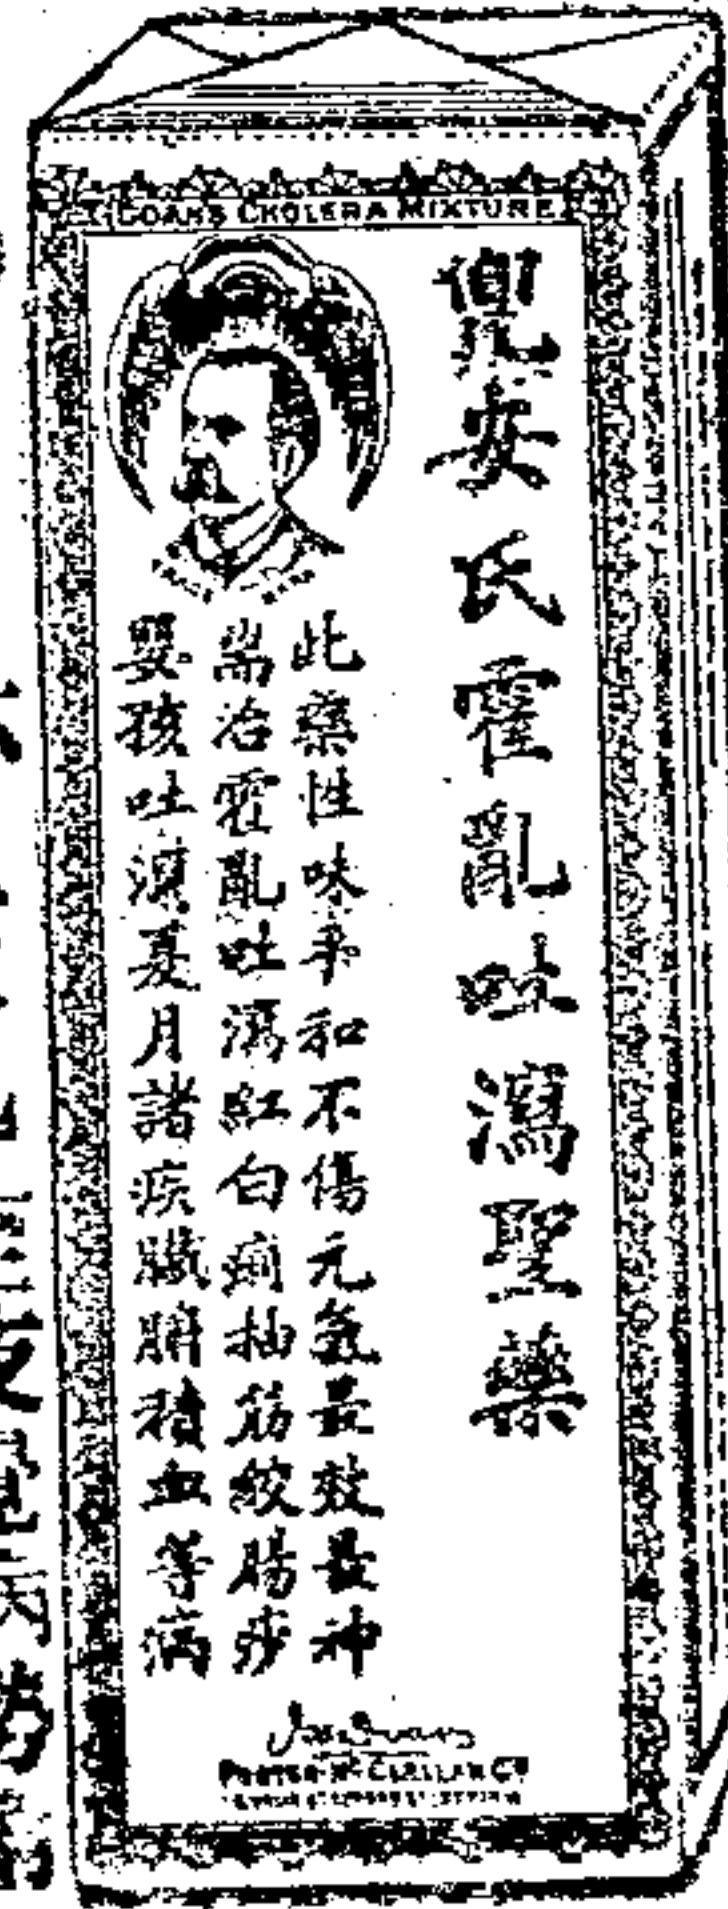 DOANS CHOLERA MIXTURE
兜安氏霍亂吐瀉聖藥
此藥性味平和不傷元氣最效最神
耑治霍亂吐瀉紅白痢抽筋絞腸痧
嬰孩吐瀉夏月諸疾臟腑積血等病
TRADE MARK
FOSTER McCLELLAN Co